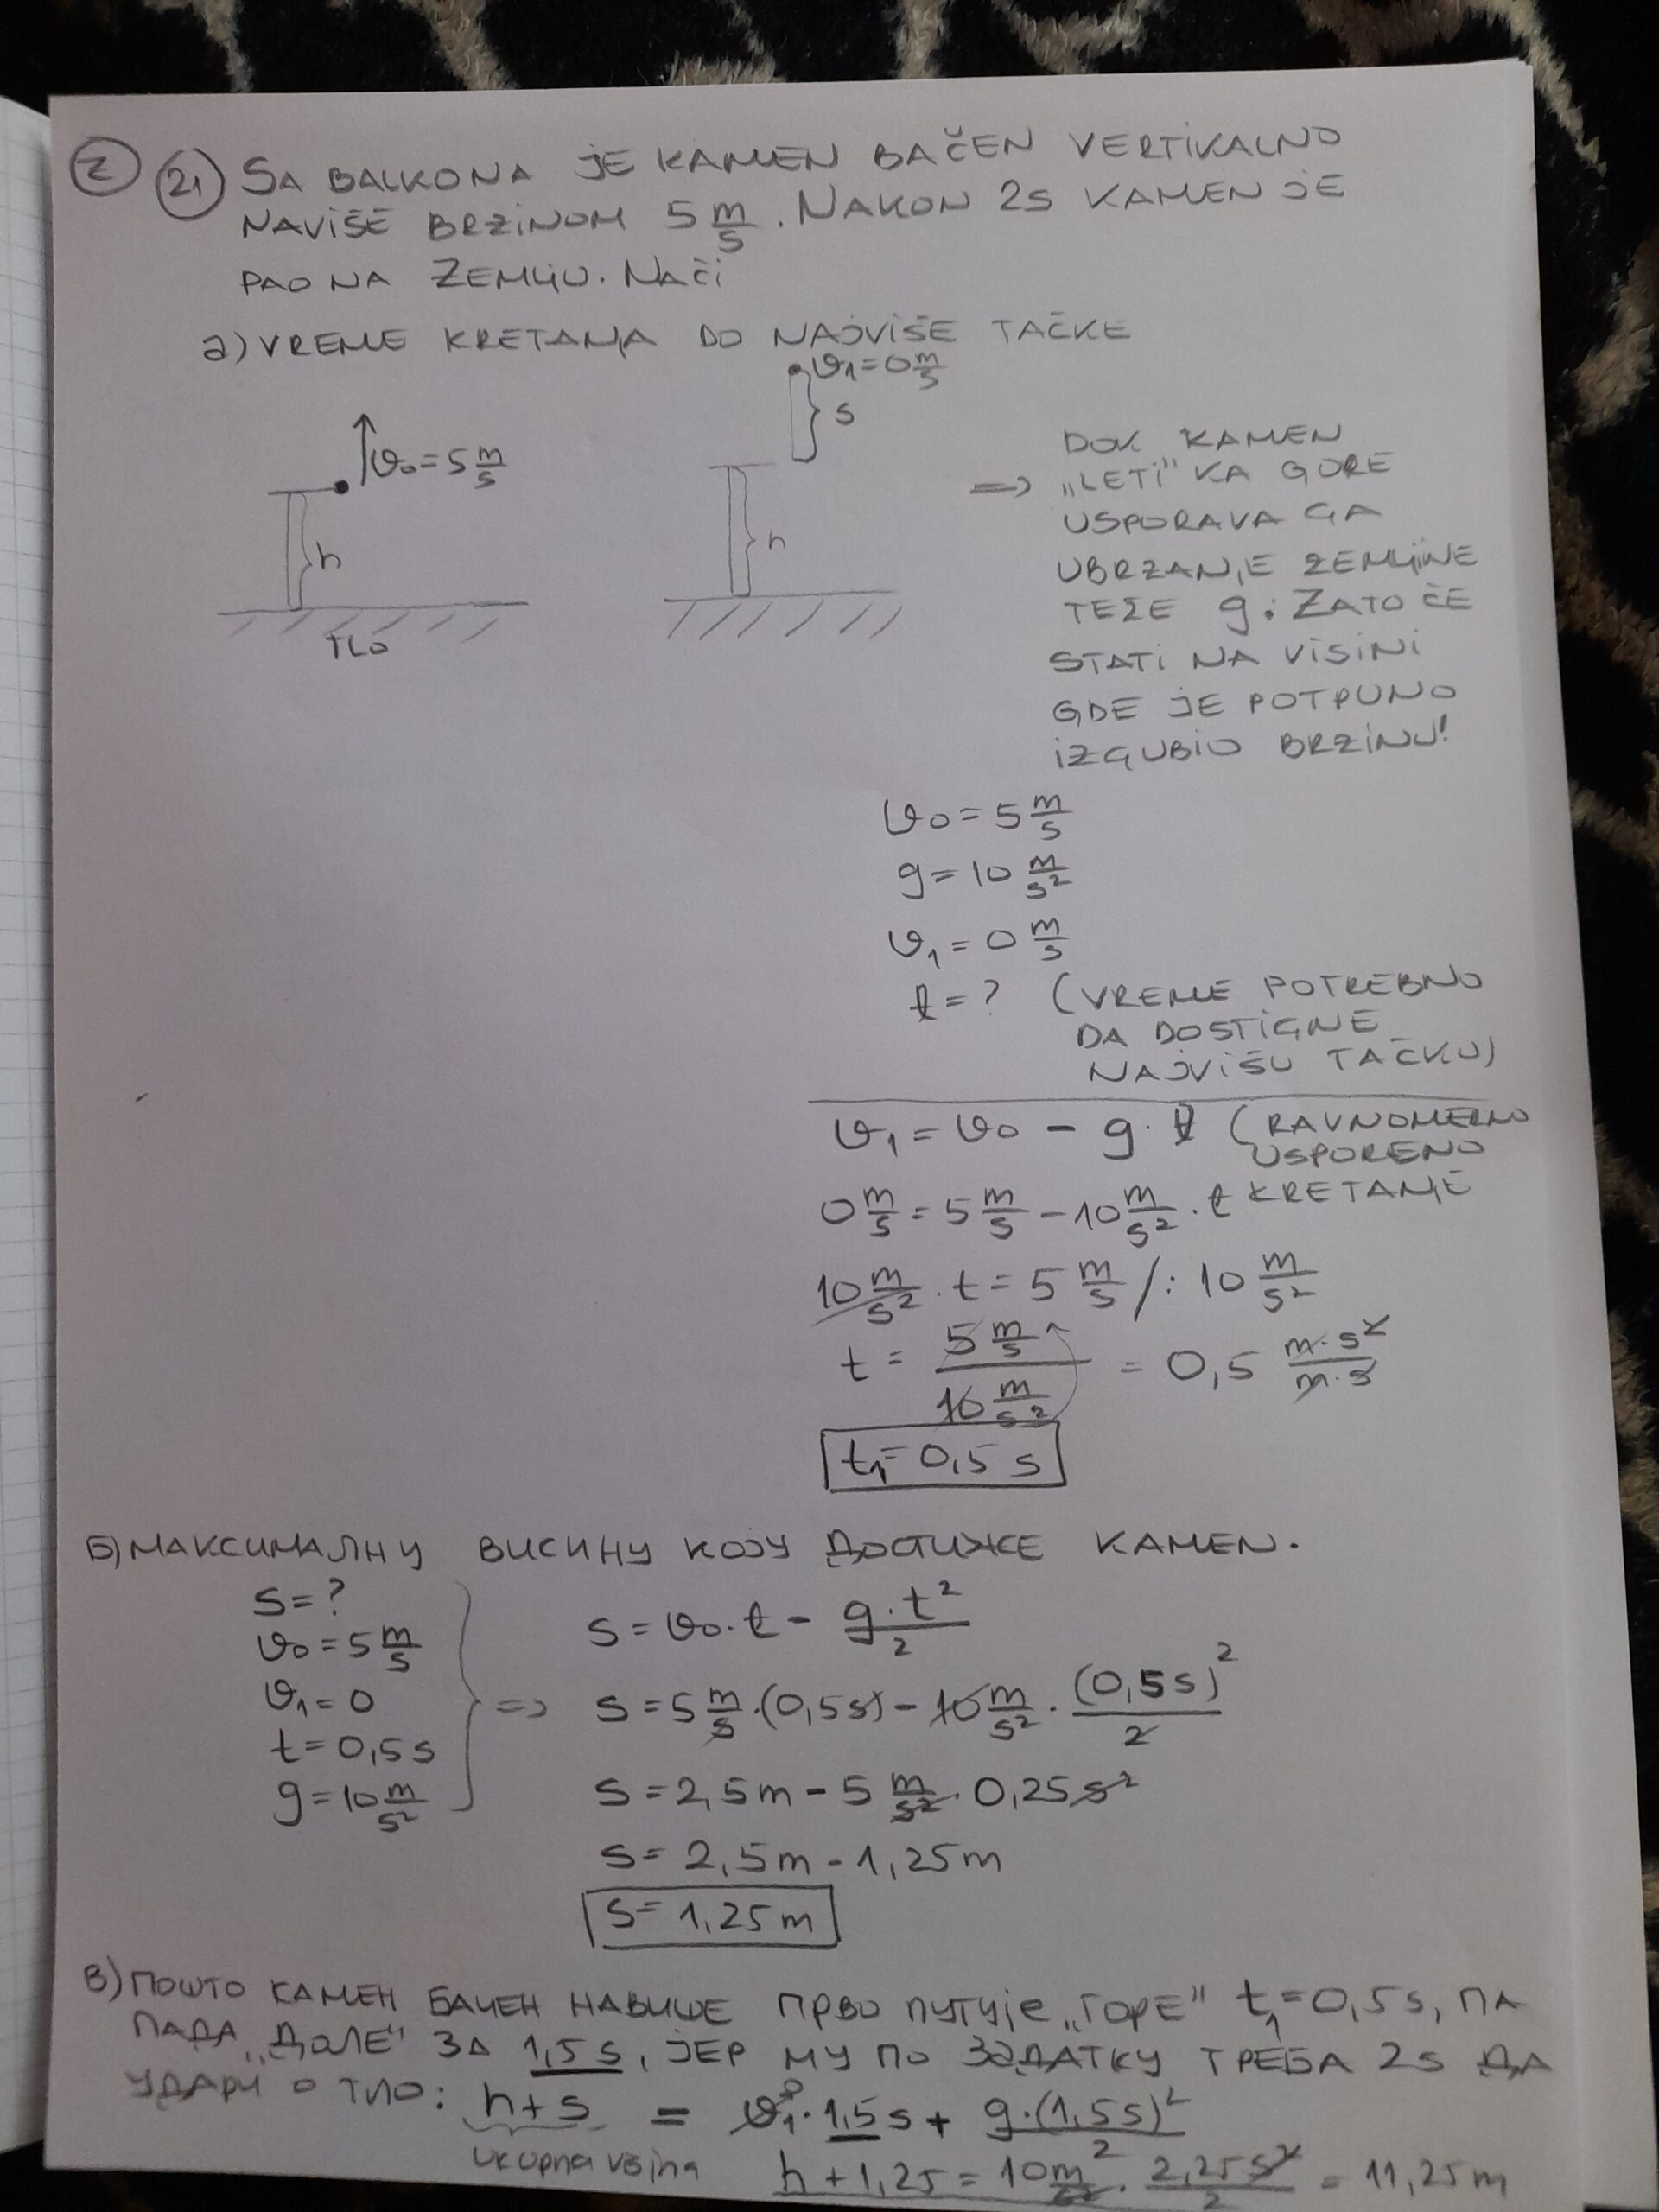 2 21 SA BALKONA JE KAMEN BAČEN VERTIKALNO
NAVIŠE BRZINOM 5 m/s. NAKON 2s KAMEN JE
PAO NA ZEMLJU. NAĆI
a) VREME KRETANJA DO NAJVIŠE TAČKE
v₁=0 m/s
s
v₀=5 m/s
h
TLO
h
=> DOK KAMEN
„LETI" KA GORE
USPORAVA GA
UBRZANJE ZEMLJINE
TEŽE g. ZATO ĆE
STATI NA VISINI
GDE JE POTPUNO
IZGUBIO BRZINU!
v₀=5 m/s
g=10 m/s²
v₁=0 m/s
t=? (VREME POTREBNO
DA DOSTIGNE
NAJVIŠU TAČKU)
v₁=v₀ - g·t (RAVNOMERNO
USPORENO
KRETANJE
0 m/s = 5 m/s - 10 m/s² · t
10 m/s² · t = 5 m/s /: 10 m/s²
t = (5 m/s)/(10 m/s²) = 0,5 (m·s²)/(m·s)
t₁=0,5 s
Б) МАКСИМАЛНУ ВИСИНУ КОЈУ ДОСТИЖЕ КАМЕN.
s=?
v₀=5 m/s
v₁=0
t=0,5s
g=10 m/s²
=>
s=v₀·t - (g·t²)/2
s=5 m/s·(0,5s) - 10 m/s² · (0,5s)²/2
s=2,5m - 5 m/s² · 0,25s²
s=2,5m - 1,25m
s=1,25m
В) ПОШТО КАМЕН БАЧЕН НАВИШЕ ПРВО ПУТУЈЕ „ГОРЕ" t₁=0,5s, ПА
ПАДА „ДОЛЕ" ЗА 1,5s, ЈЕР МУ ПО ЗАДАТКУ ТРЕБА 2s ДА
УДАРИ О ТЛО: h+s = v₁⁰·1,5s + (g·(1,5s)²)/2
ukupna visina
h+1,25 = 10 m/s² · (2,25s²)/2 = 11,25m